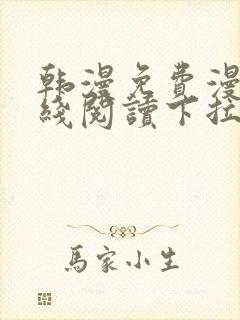 韩漫免費漫
綫閱讀下拉
馬家小生